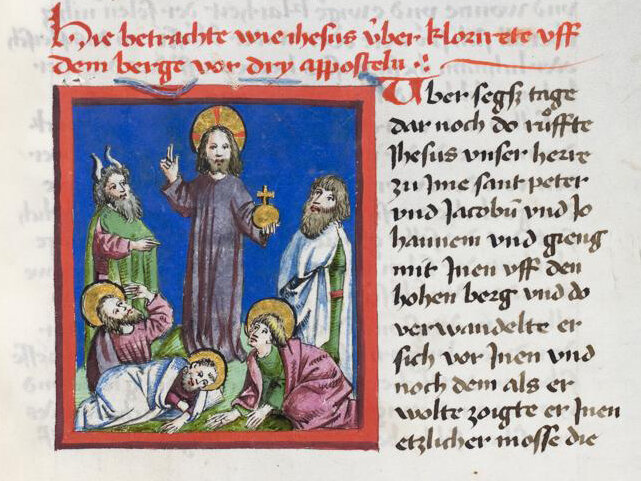 Hie betrachte wie ihesus v̈ber klorirete vff
dem berge vor dry appostelu :·
Vber segsz tage
dar noch do rů̊ffte
Jhesus vnser herre
zü Jme sant peter
vnd Jacobū vnd Jo
hannem vnd gieng
mit Jnen vff den
hohen berg vnd do
verwandelte er
sich vor Jnen vnd
noch dem als er
wolte zoigte er Jnen
etzlicher mosse die